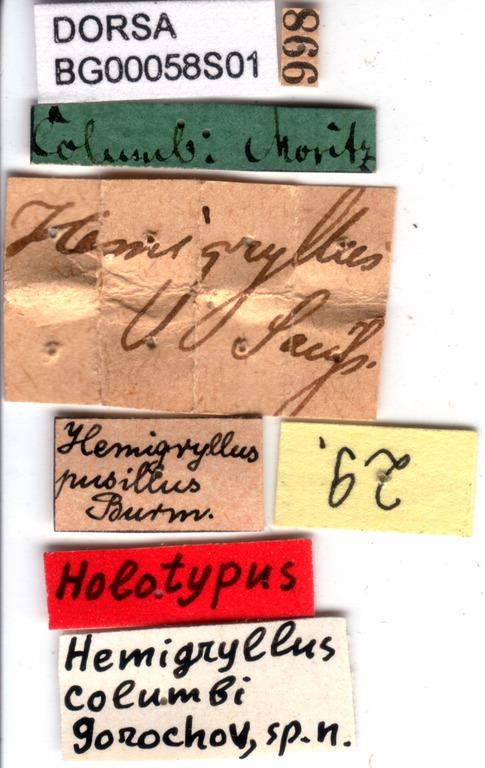 DORSA
BG00058S01
998
Columb: Moritz
Hemigryllus
Sauss.
Hemigryllus
pusillus
Burm.
29.
Holotypus
Hemigryllus
columbi
gorochov, sp.n.